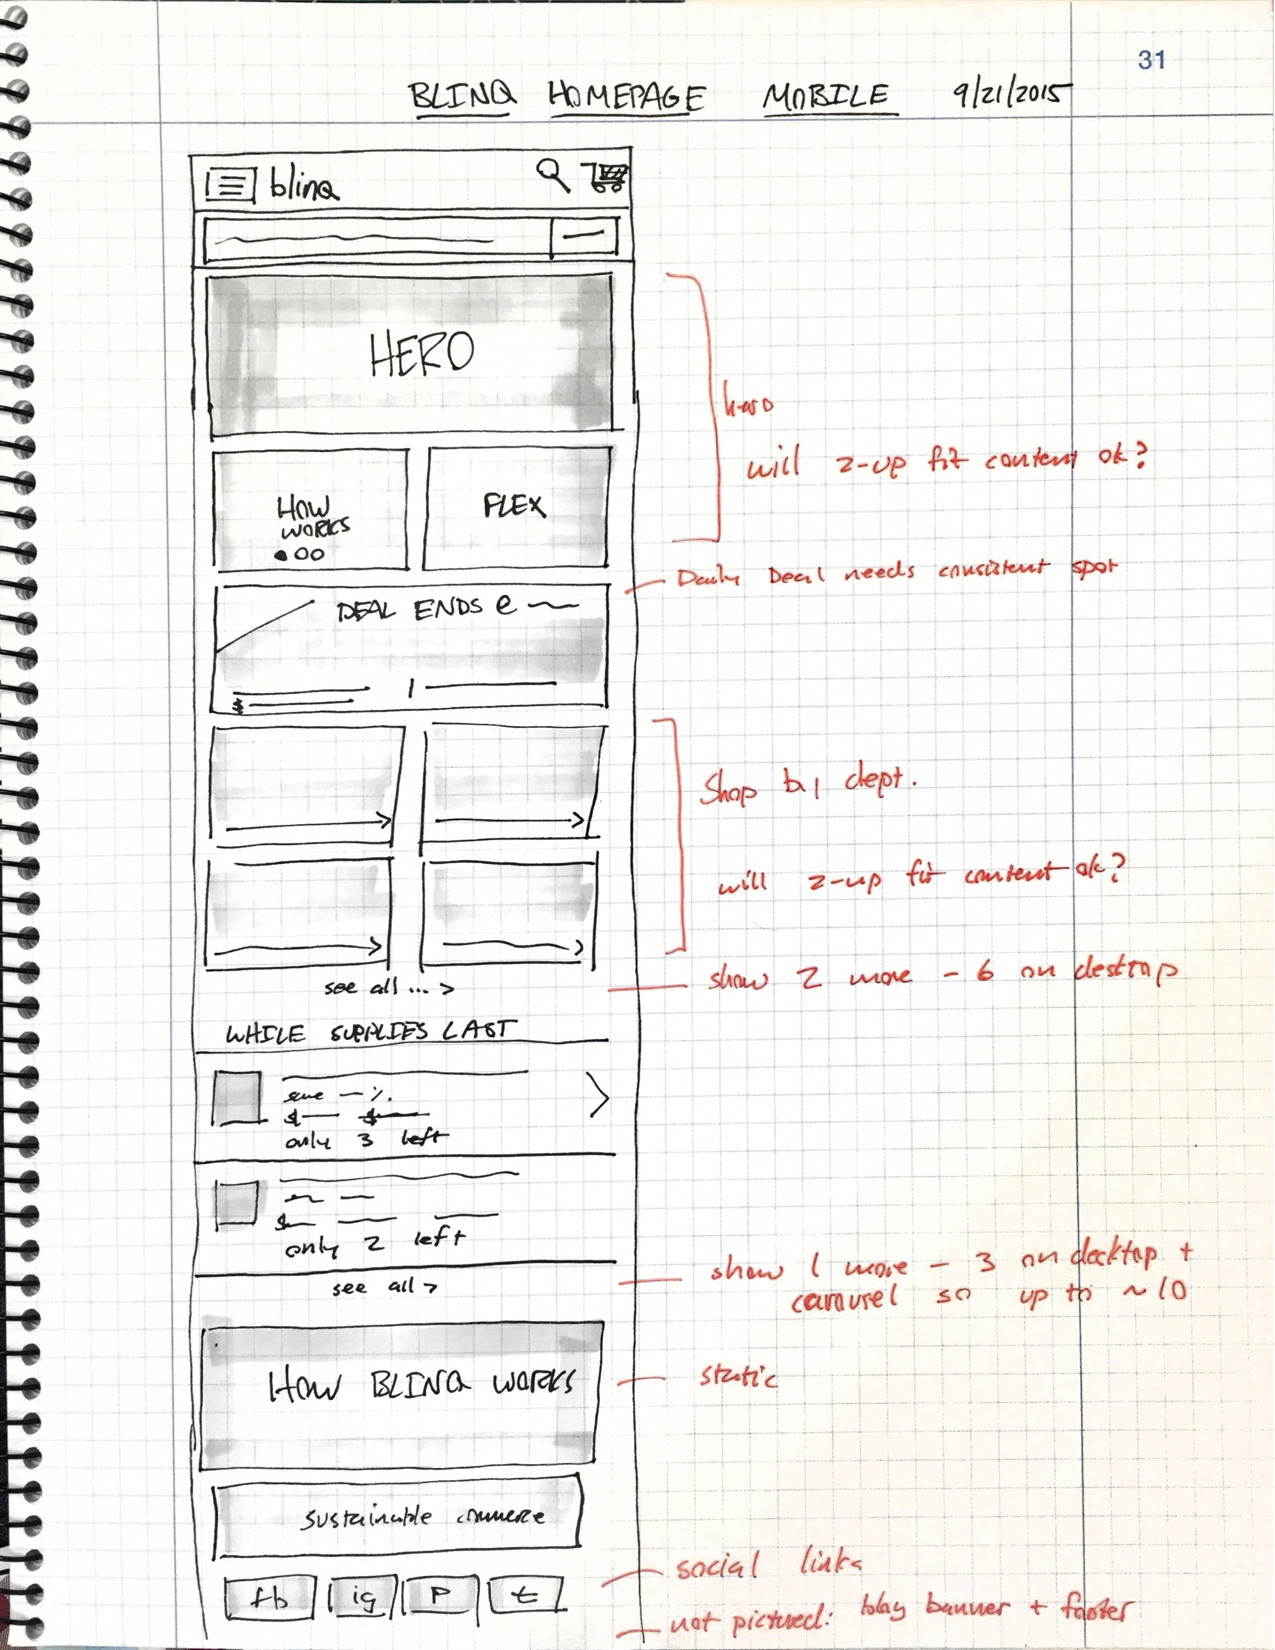 31
BLINQ HOMEPAGE MOBILE 9/21/2015
blinq
HERO
hero
will 2-up fit content ok?
HOW
WORKS
FLEX
Daily Deal needs consistent spot
DEAL ENDS @
$
Shop by dept.
will 2-up fit content ok?
see all ... >
show 2 more - 6 on desktop
WHILE SUPPLIES LAST
save - %
$ $
only 3 left
$
only 2 left
see all >
show 1 more - 3 on desktop +
carousel so up to ~10
HOW BLINQ WORKS
static
sustainable commerce
social links
fb ig P t
not pictured: banner + footer